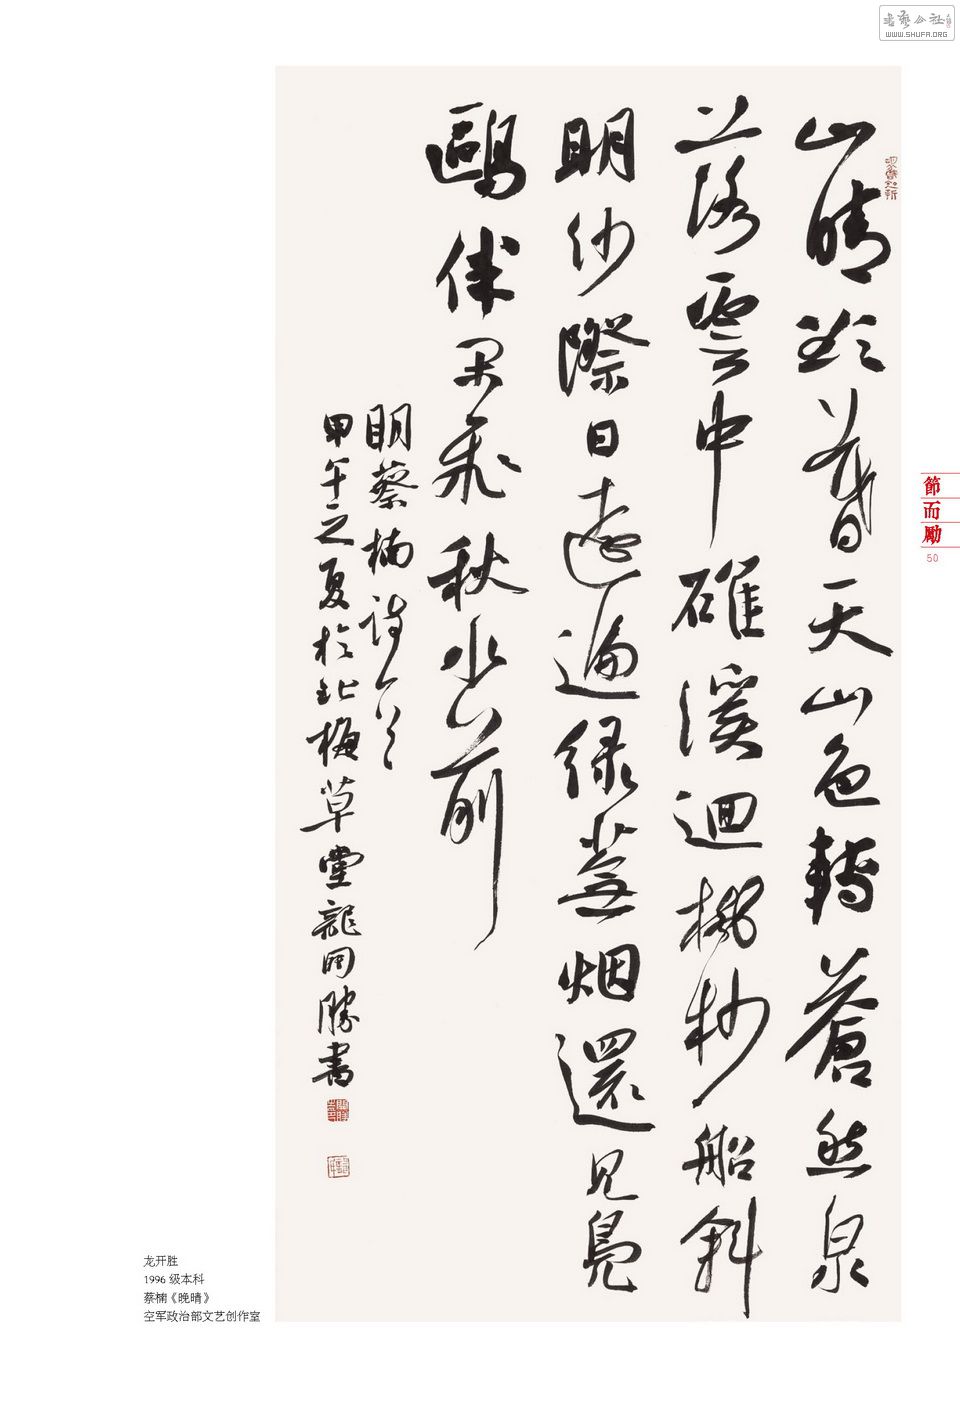 山晴欲暮天山色轉蒼然泉
落雲中碓溪迴樹杪船斜
明沙際日遠遍绿蕪烟還見鳧
鷗伴閑飛秋水前
明蔡楠詩一首
甲午之夏於北梅草堂龍開勝書
節而勵
50
龙开胜
1996 级本科
蔡楠《晚晴》
空军政治部文艺创作室
书艺公社
WWW.SHUFA.ORG